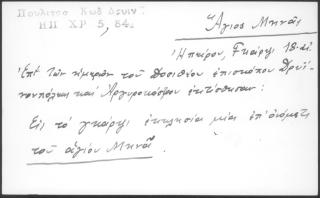 Πουλίτσα Κωδ Δρυιν.
ΗΠ ΧΡ 5, 84.
Ἅγιος Μηνᾶς
Ἠπείρου,
Ἐπὶ τῶν ἡμερῶν τοῦ Δοσιθέου ἐπισκόπου Δρυϊ-
νουπόλεως καὶ Ἀργυροκάστρου ἐκτίσθησαν:
Εἰς τὸ γκάρψι ἐκκλησία μία ἐπ' ὀνόματι
τοῦ ἁγίου Μηνᾶ.